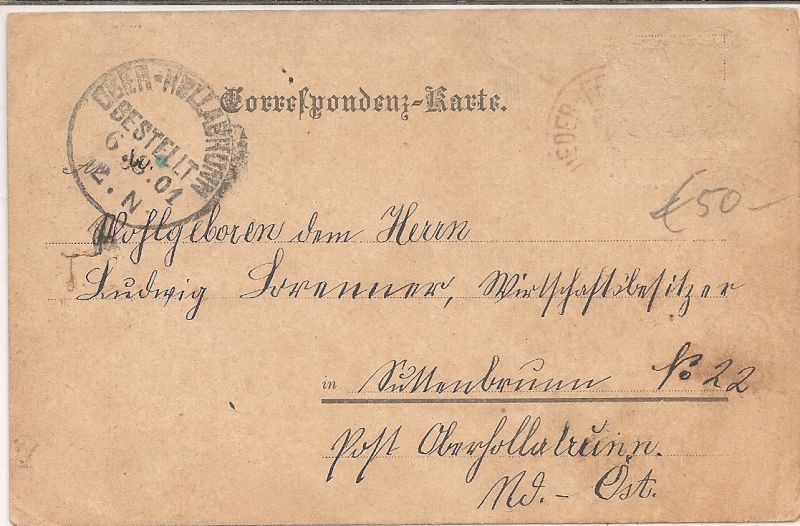 Correspondenz-Karte.
OBER-HOLLABRUNN
BESTELLT
6 01
2. N
€50-
Wohlgeboren dem Herrn
Ludwig Brenner, Wirtschaftsbesitzer
in Suttenbrunn No 22
Post Oberhollabrunn.
Nd.- Öst.